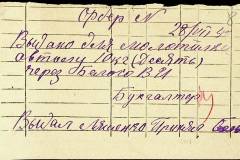 Ордер №
28/VIII
Выдано для молотилки
автолу 10 кг (Десять)
через Белого В И
Бухгалтер
Выдал Ляшенко Принял